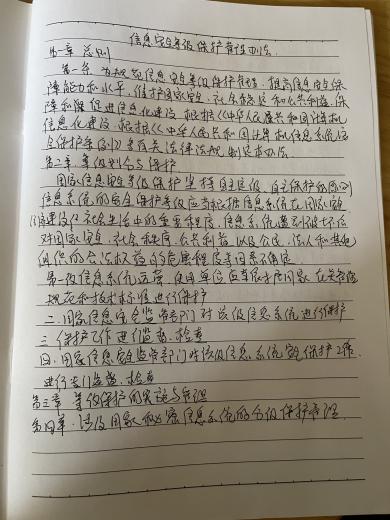 信息安全等级保护管理办法
第一章 总则
第一条 为规范信息安全等级保护管理，提高信息安全保
障能力和水平，维护国家安全、社会稳定和公共利益，保
障和促进信息化建设，根据《中华人民共和国计算机
信息化建设，根据《中华人民共和国计算机信息系统安
全保护条例》等有关法律法规，制定本办法
第二章 等级划分与保护
国家信息安全等级保护坚持自主定级、自主保护的原则
信息系统的安全保护等级应当根据信息系统在国家安
建设、社会生活中的重要程度，信息系统遭到破坏后
对国家安全、社会秩序、公共利益以及公民、法人和其他
组织的合法权益的危害程度等因素确定
第一级信息系统运营、使用单位应当依据国家有关管理
规范和技术标准进行保护
二、国家信息安全监管部门对该级信息系统进行保护
三、保护工作进行监督、检查
四、国家信息安全监管部门对该级信息系统安全保护工作
进行专门监督、检查
第三章 等级保护的实施与管理
第四章、涉及国家秘密信息系统的分级保护管理